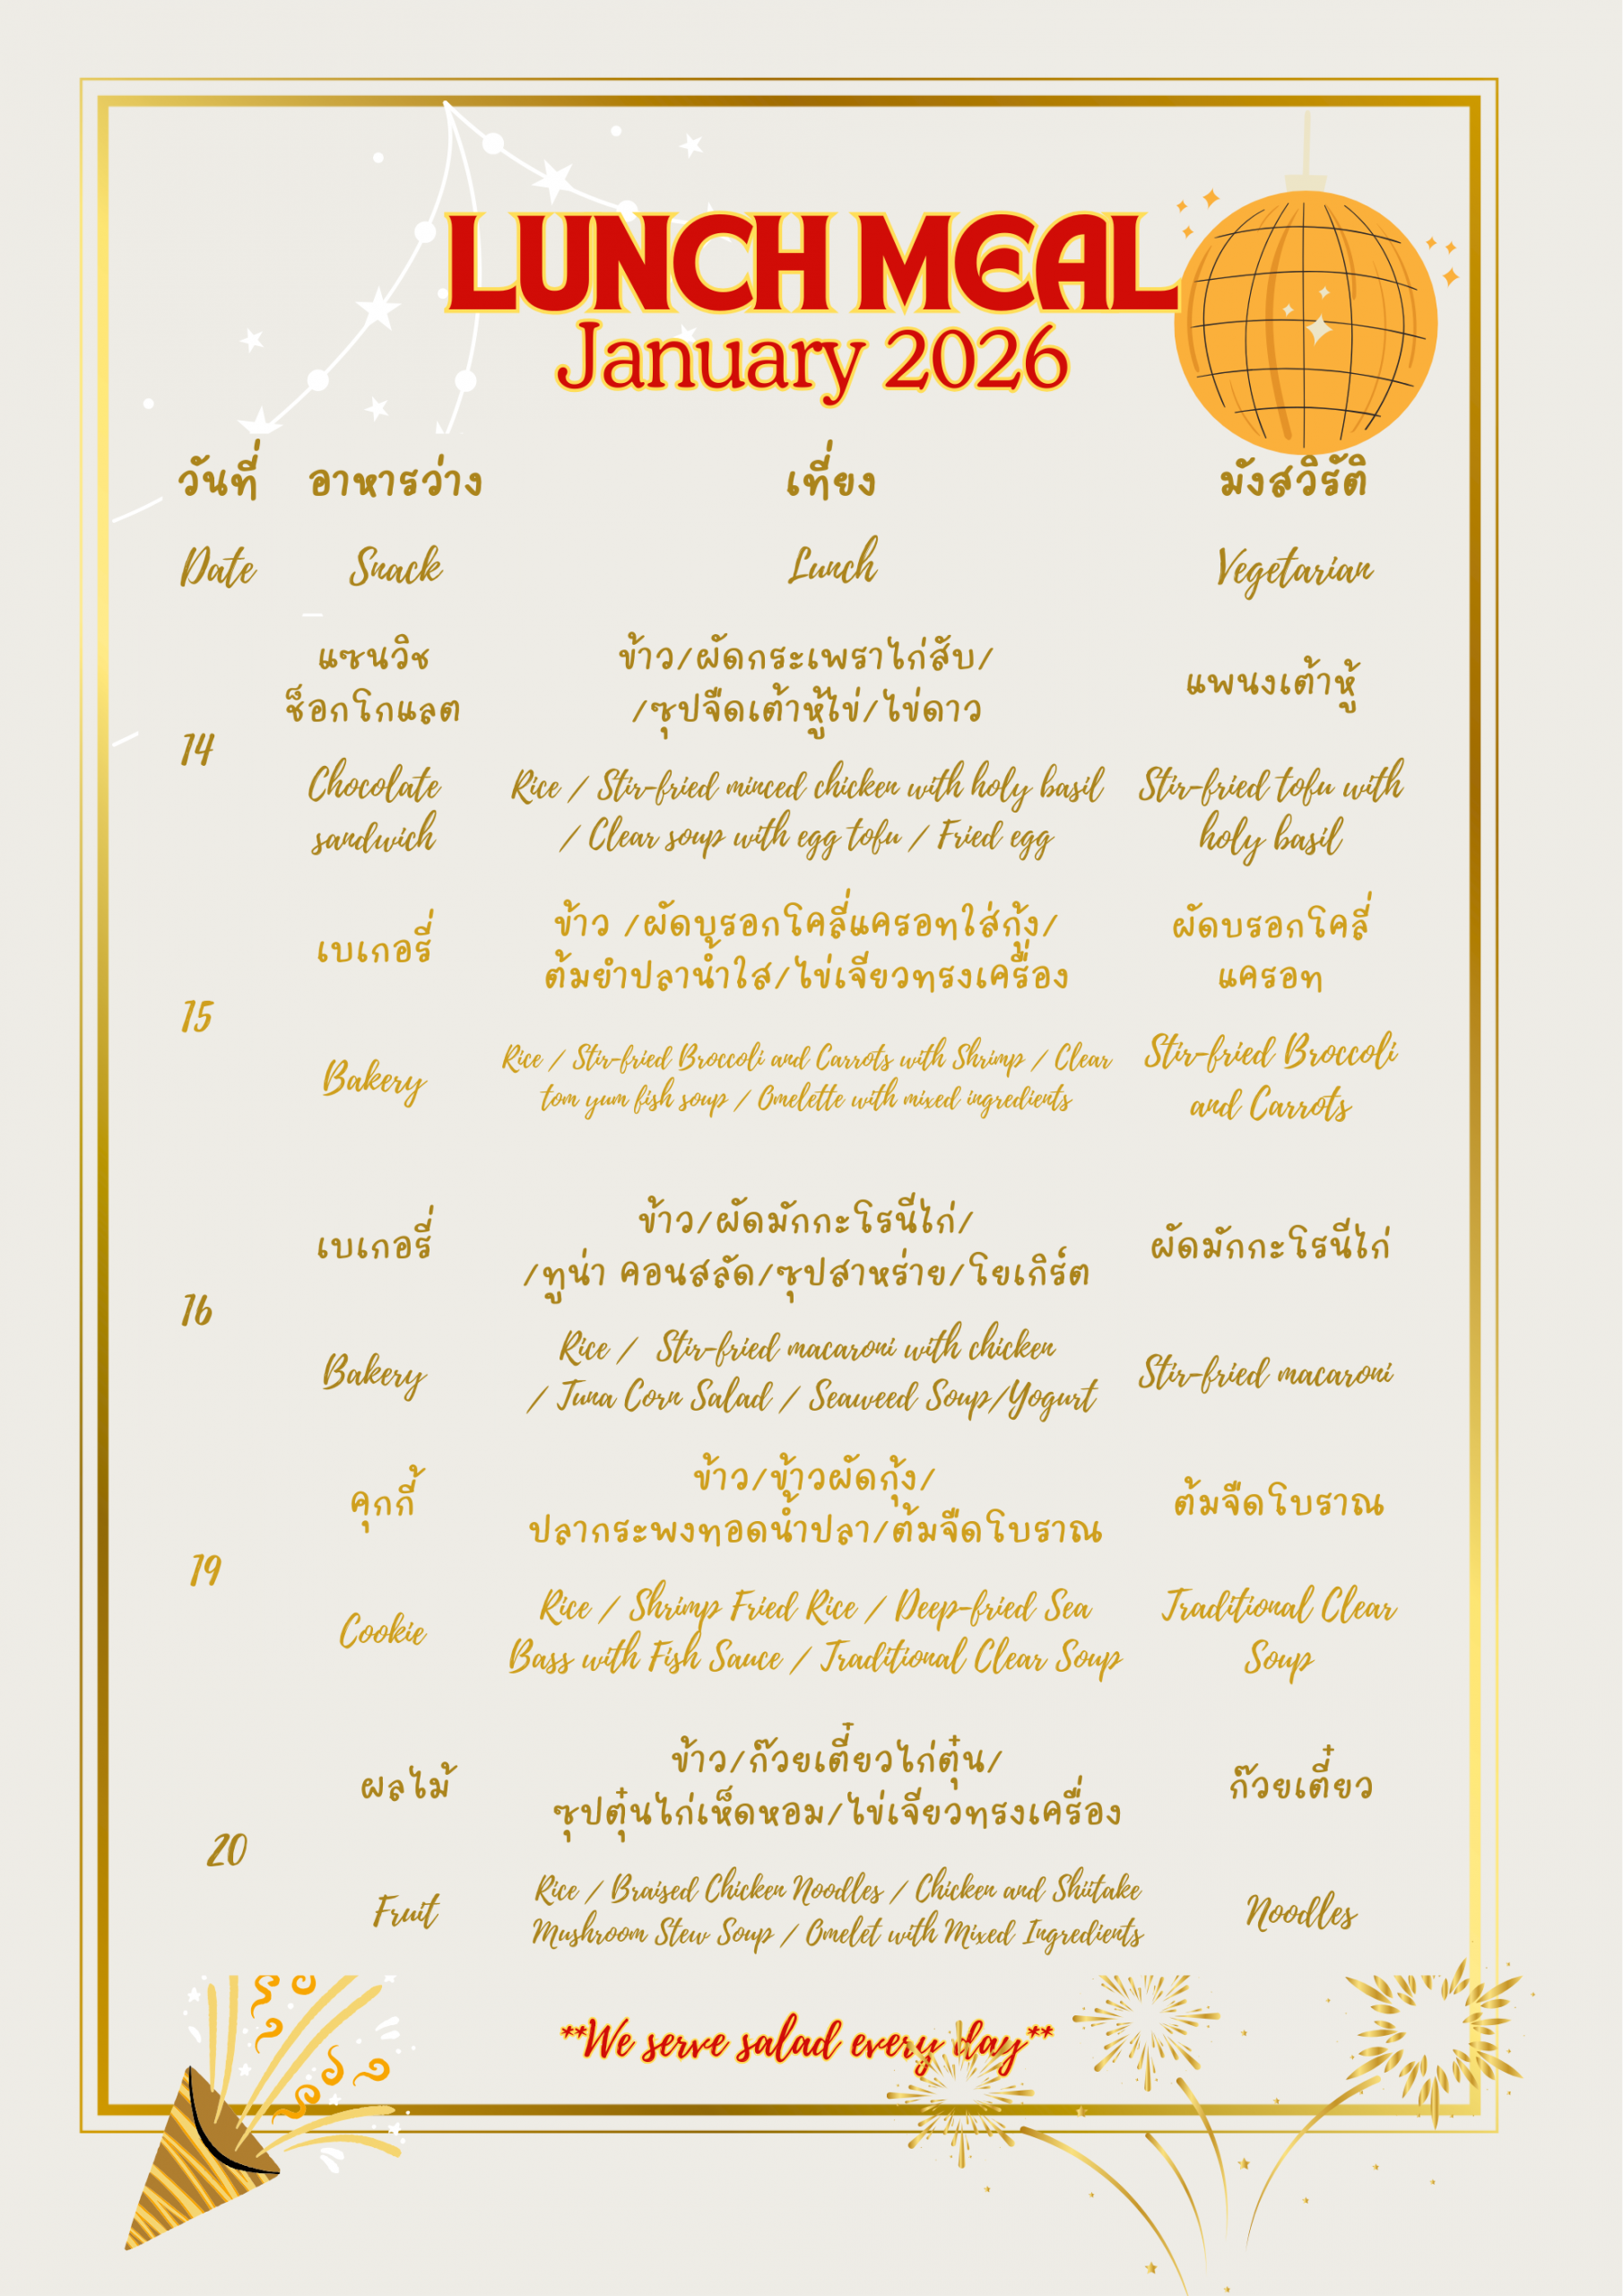 LUNCH MEAL
January 2026
วันที่ อาหารว่าง เที่ยง มังสวิรัติ
Date Snack Lunch Vegetarian
14
แซนวิช
ช็อกโกแลต
Chocolate
sandwich
ข้าว/ผัดกระเพราไก่สับ/
/ซุปจืดเต้าหู้ไข่/ไข่ดาว
Rice / Stir-fried minced chicken with holy basil
/ Clear soup with egg tofu / Fried egg
แพนงเต้าหู้
Stir-fried tofu with
holy basil
15
เบเกอรี่
Bakery
ข้าว /ผัดบรอกโคลี่แครอทใส่กุ้ง/
ต้มยำปลาน้ำใส/ไข่เจียวทรงเครื่อง
Rice / Stir-fried Broccoli and Carrots with Shrimp / Clear
tom yum fish soup / Omelette with mixed ingredients
ผัดบรอกโคลี่
แครอท
Stir-fried Broccoli
and Carrots
16
เบเกอรี่
Bakery
ข้าว/ผัดมักกะโรนีไก่/
/ทูน่า คอนสลัด/ซุปสาหร่าย/โยเกิร์ต
Rice / Stir-fried macaroni with chicken
/ Tuna Corn Salad / Seaweed Soup/Yogurt
ผัดมักกะโรนีไก่
Stir-fried macaroni
19
คุกกี้
Cookie
ข้าว/ข้าวผัดกุ้ง/
ปลากระพงทอดน้ำปลา/ต้มจืดโบราณ
Rice / Shrimp Fried Rice / Deep-fried Sea
Bass with Fish Sauce / Traditional Clear Soup
ต้มจืดโบราณ
Traditional Clear
Soup
20
ผลไม้
Fruit
ข้าว/ก๊วยเตี๋ยวไก่ตุ๋น/
ซุปตุ๋นไก่เห็ดหอม/ไข่เจียวทรงเครื่อง
Rice / Braised Chicken Noodles / Chicken and Shiitake
Mushroom Stew Soup / Omelet with Mixed Ingredients
ก๊วยเตี๋ยว
Noodles
**We serve salad every day**